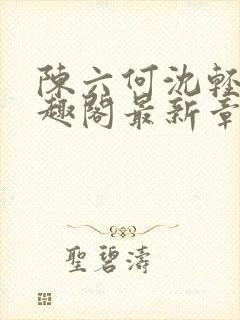 陳六何沈輕
趣閣最新章
聖碧濤